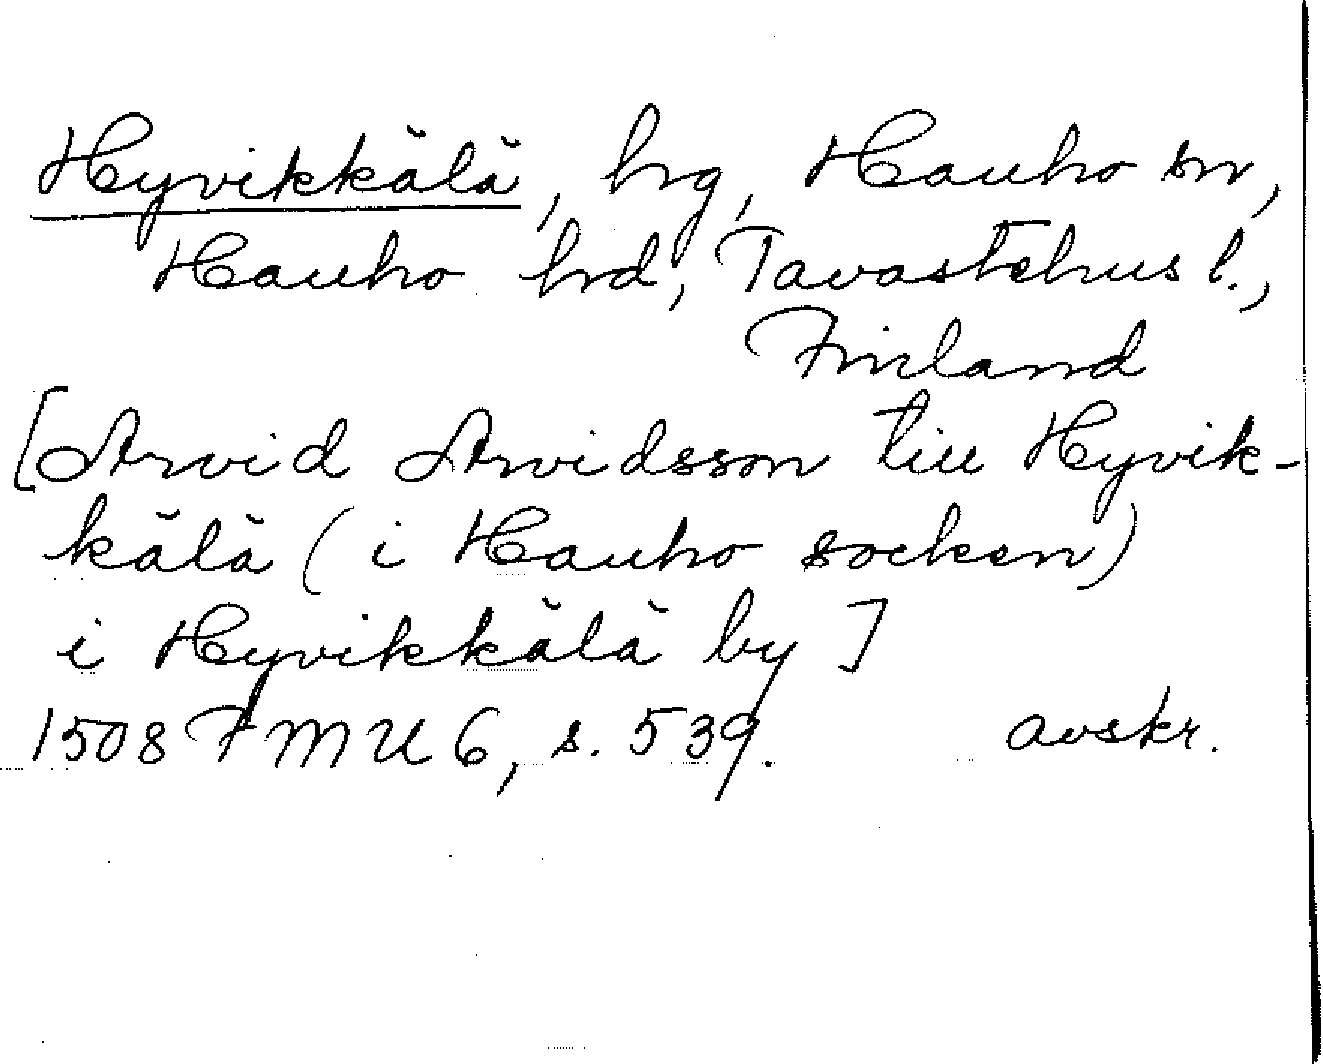 Hyvikkälä, hrg, Hauho sn,
Hauho hrd, Tavastehus l.,
Finland
[Arvid Arvidsson till Hyvik-
kälä (i Hauho socken)
i Hyvikkälä by]
1508 FMU 6, s. 539. avskr.